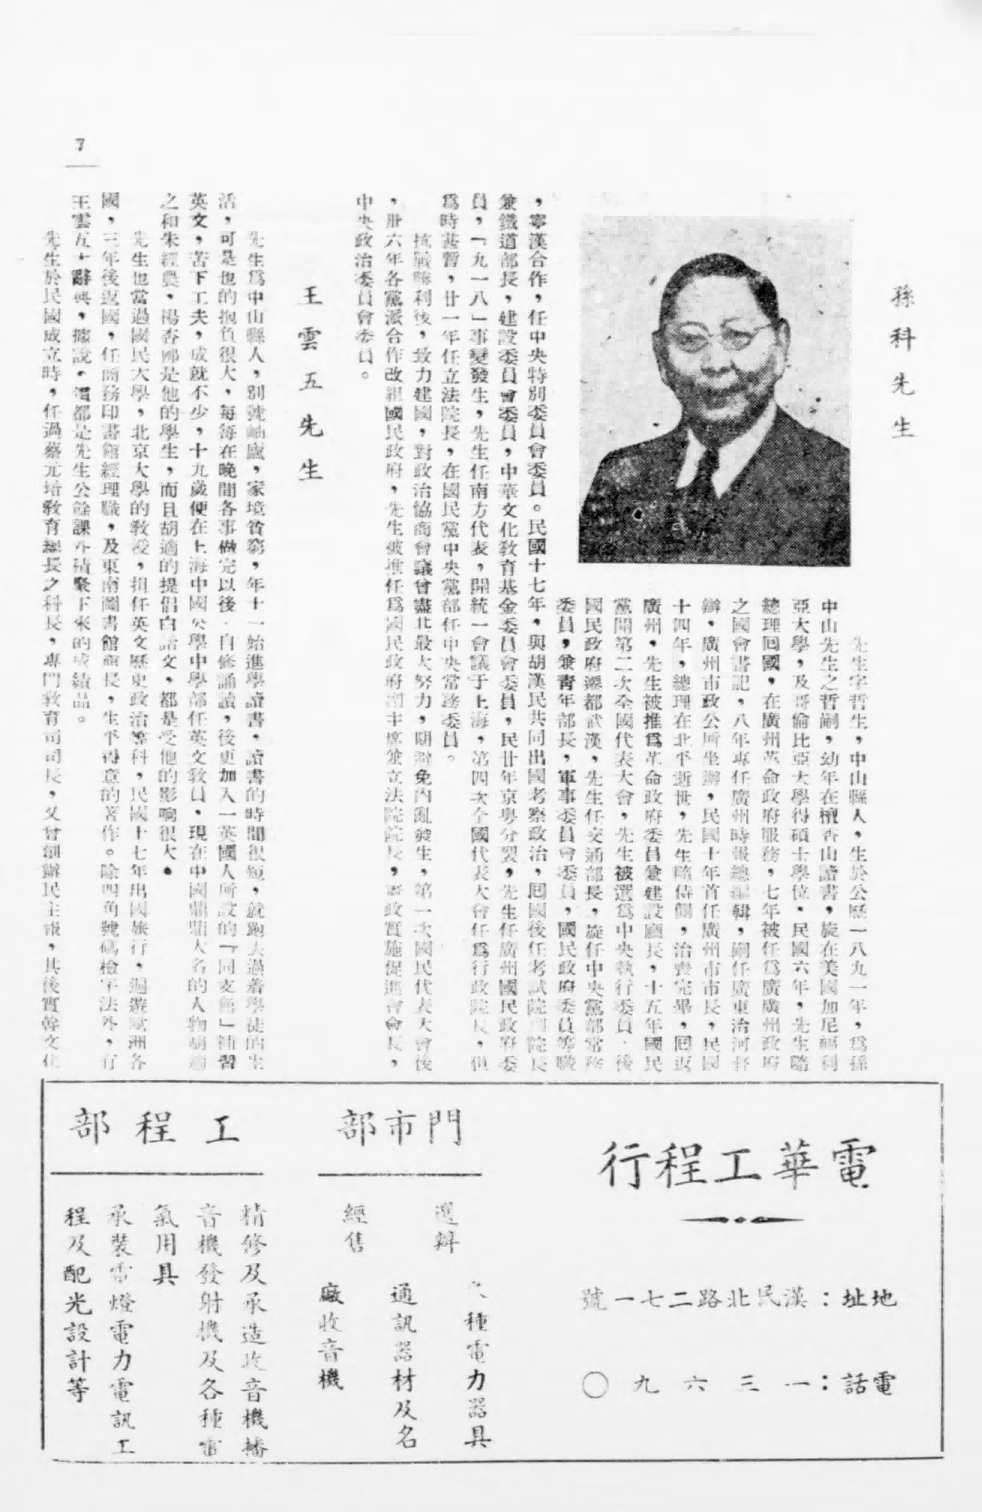 7
孫科先生
先生字哲生，中山縣人，生於公歷一八九一年，爲孫
中山先生之哲嗣，幼年在檀香山讀書，旋在美國加尼福利
亞大學，及哥倫比亞大學得碩士學位。民國六年，先生隨
總理回國，在廣州革命政府服務，七年被任爲廣廣州政府
之國會書記，八年專任廣州時報總編輯，嗣任廣東治河督
辦，廣州市政公所坐辦，民國十年首任廣州市市長，民國
十四年，總理在北平逝世，先生隨侍側，治喪完畢，回返
廣州，先生被推爲革命政府委員兼建設廳長，十五年國民
黨開第二次全國代表大會，先生被選爲中央執行委員，後
國民政府遷都武漢，先生任交通部長，旋任中央黨部常務
委員，兼靑年部長，軍事委員會委員，國民政府委員等職
，寧漢合作，任中央特別委員會委員。民國十七年，與胡漢民共同出國考察政治，囘國後任考試院副院長
兼鐵道部長，建設委員會委員，中華文化教育基金委員會委員，民廿年京粤分裂，先生任廣州國民政府委
員，「九一八」事變發生，先生任南方代表，開統一會議于上海，第四次全國代表大會任爲行政院長，但
爲時甚暫，廿一年任立法院長，在國民黨中央黨部任中央常務委員。
抗戰勝利後，致力建國，對政治協商會議曾盡北最大努力，期避免內亂發生，第一次國民代表大會後
，卅六年各黨派合作改組國民政府，先生被推任爲國民政府副主席兼立法院院長，憲政實施促進會會長，
中央政治委員會委員。
王雲五先生
先生爲中山縣人，別號岫廬，家境貧窮，年十一始進學讀書，讀書的時間很短，就跑去過着學徒的生
活，可是也的抱負很大，每每在晚間各事做完以後，自修誦讀，後更加入一英國人所設的「同文館」補習
英文，苦下工夫，成就不少，十九歲便在上海中國公學中學部任英文敎員，現在中國鼎鼎大名的人物胡適
之和朱經農，楊杏佛是他的學生，而且胡適的提倡白話文，都是受他的影响很大。
先生也當過國民大學，北京大學的敎授，担任英文歷史政治等科，民國十七年出國旅行，遍遊歐洲各
國，三年後返國，任商務印書館經理職，及東南圖書館館長，生平得意的著作。除四角號碼檢字法外，有
王雲五大辭典，據說，還都是先生公餘課外積聚下來的成績品。
先生於民國成立時，任過蔡元培敎育總長之科長，專門敎育司司長，又曾創辦民主報，其後實幹文化
電華工程行
地址：漢民北路二七一號
電話：一三六九〇
門市部
選辦
種電力器具
通訊器材及名
經售
廠收音機
工程部
精修及承造收音機播
音機發射機及各種電
氣用具
承裝電燈電力電訊工
程及配光設計等